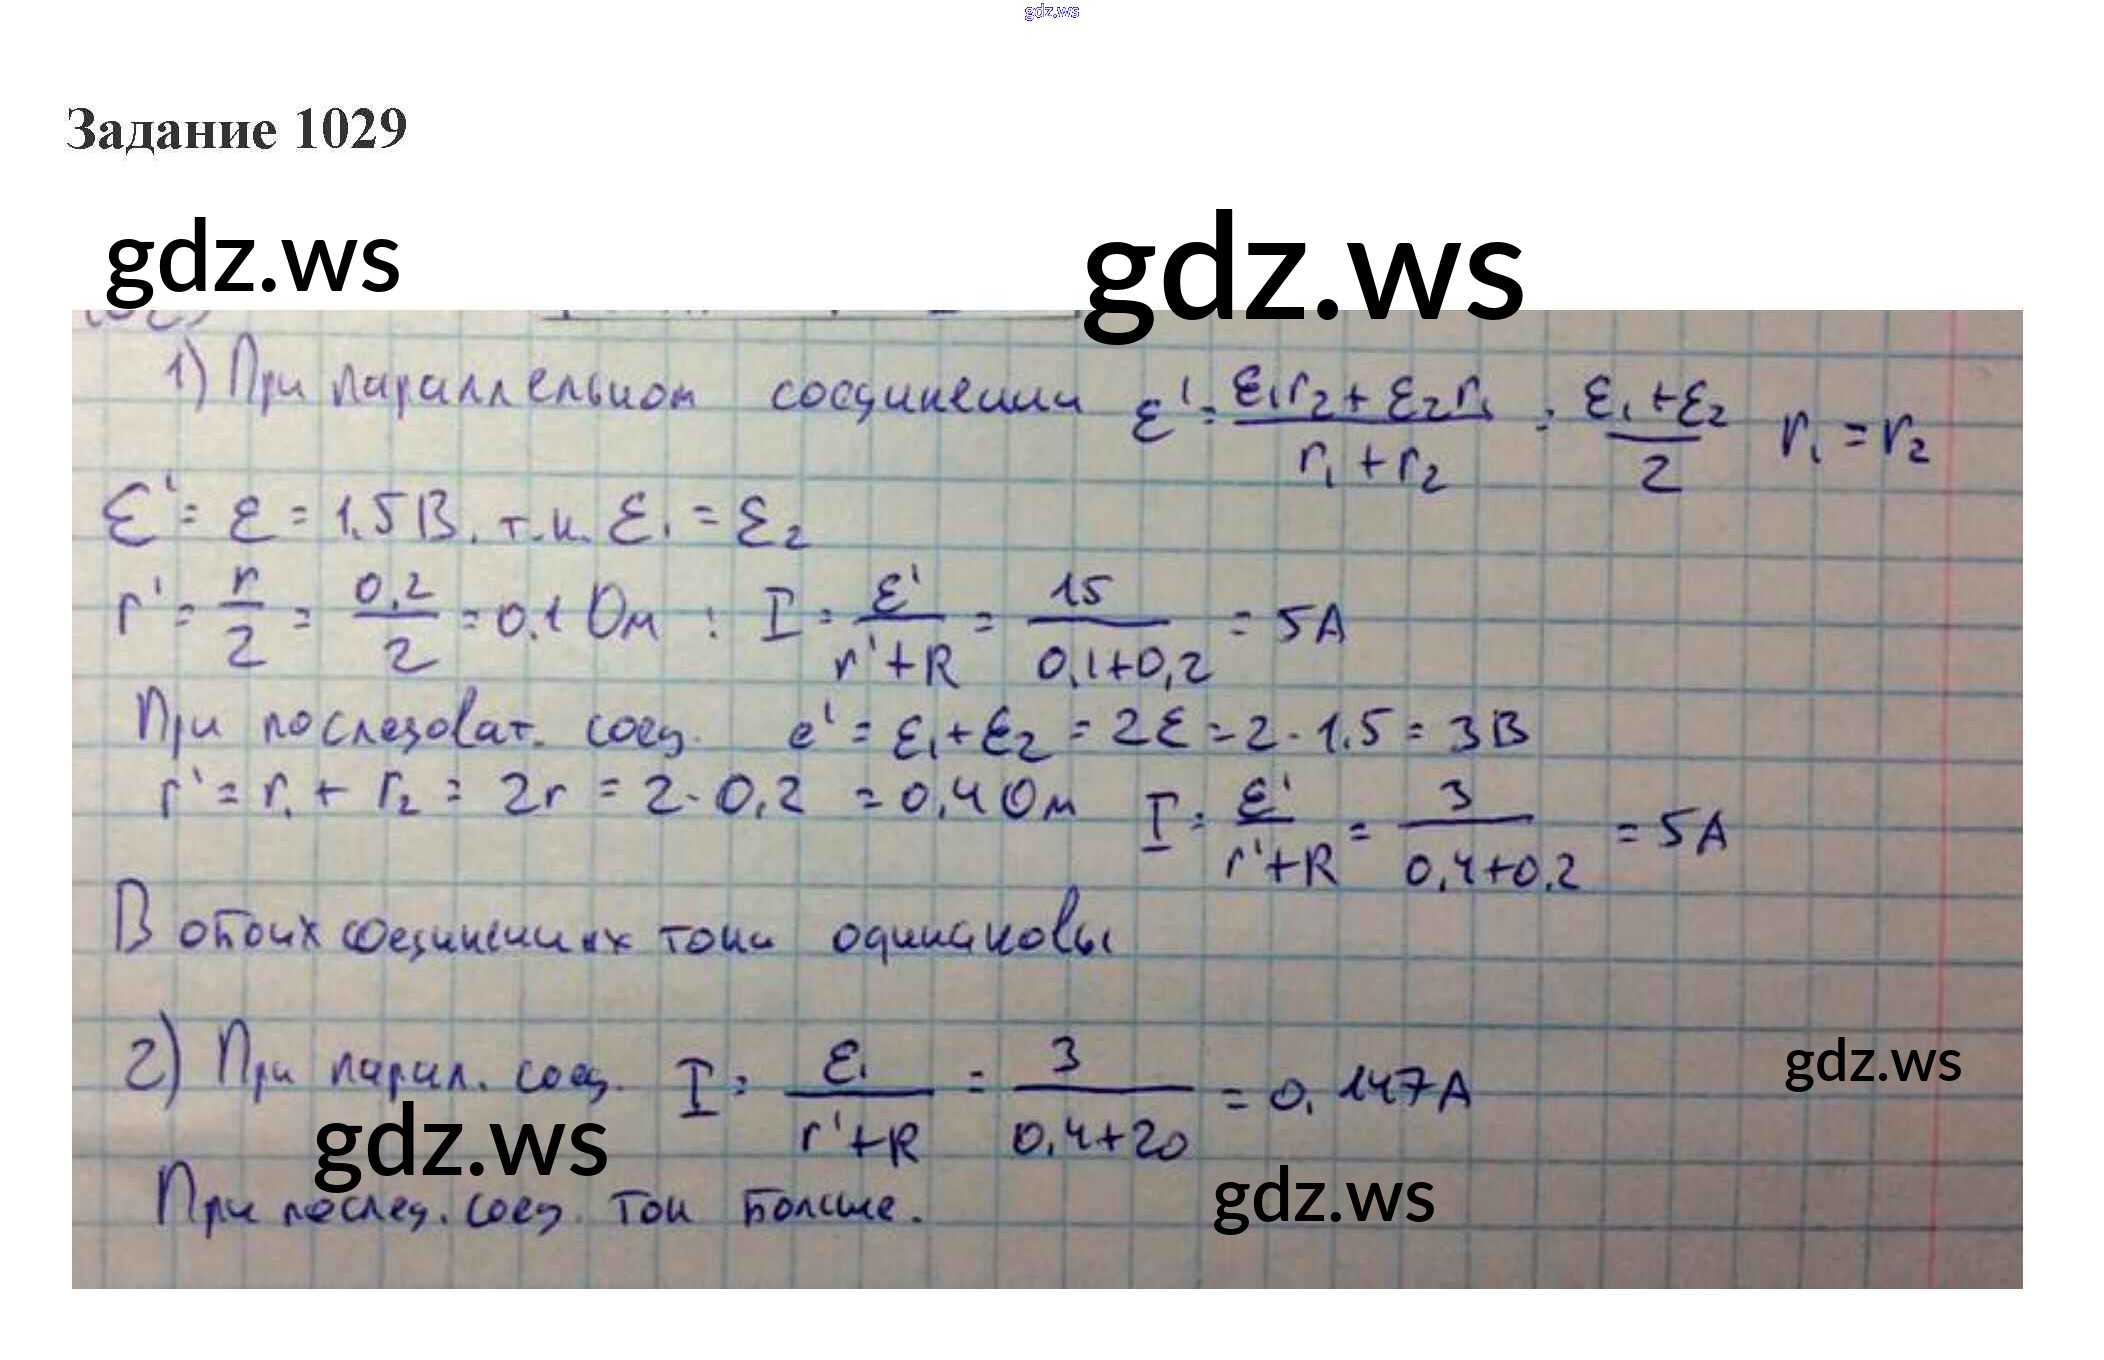 gdz.ws
Задание 1029
gdz.ws gdz.ws
1) При параллельном соединении ε' = (ε₁r₂ + ε₂r₁)/(r₁ + r₂) = (ε₁ + ε₂)/2 r₁ = r₂
ε' = ε = 1.5В. т.к. ε₁ = ε₂
r' = r/2 = 0,2/2 = 0.1 Ом : I = ε'/(r'+R) = 15/(0,1+0,2) = 5А
При последоват. соед. e' = ε₁+ε₂ = 2ε = 2·1.5 = 3В
r' = r₁ + r₂ = 2r = 2·0,2 = 0,4 Ом I = ε'/(r'+R) = 3/(0,4+0,2) = 5А
В обоих соединениях токи одинаковы
2) При парал. соед. I = ε₁/(r'+R) = 3/(0,4+20) = 0.147А
gdz.ws
gdz.ws
При послед. соед. ток больше.
gdz.ws